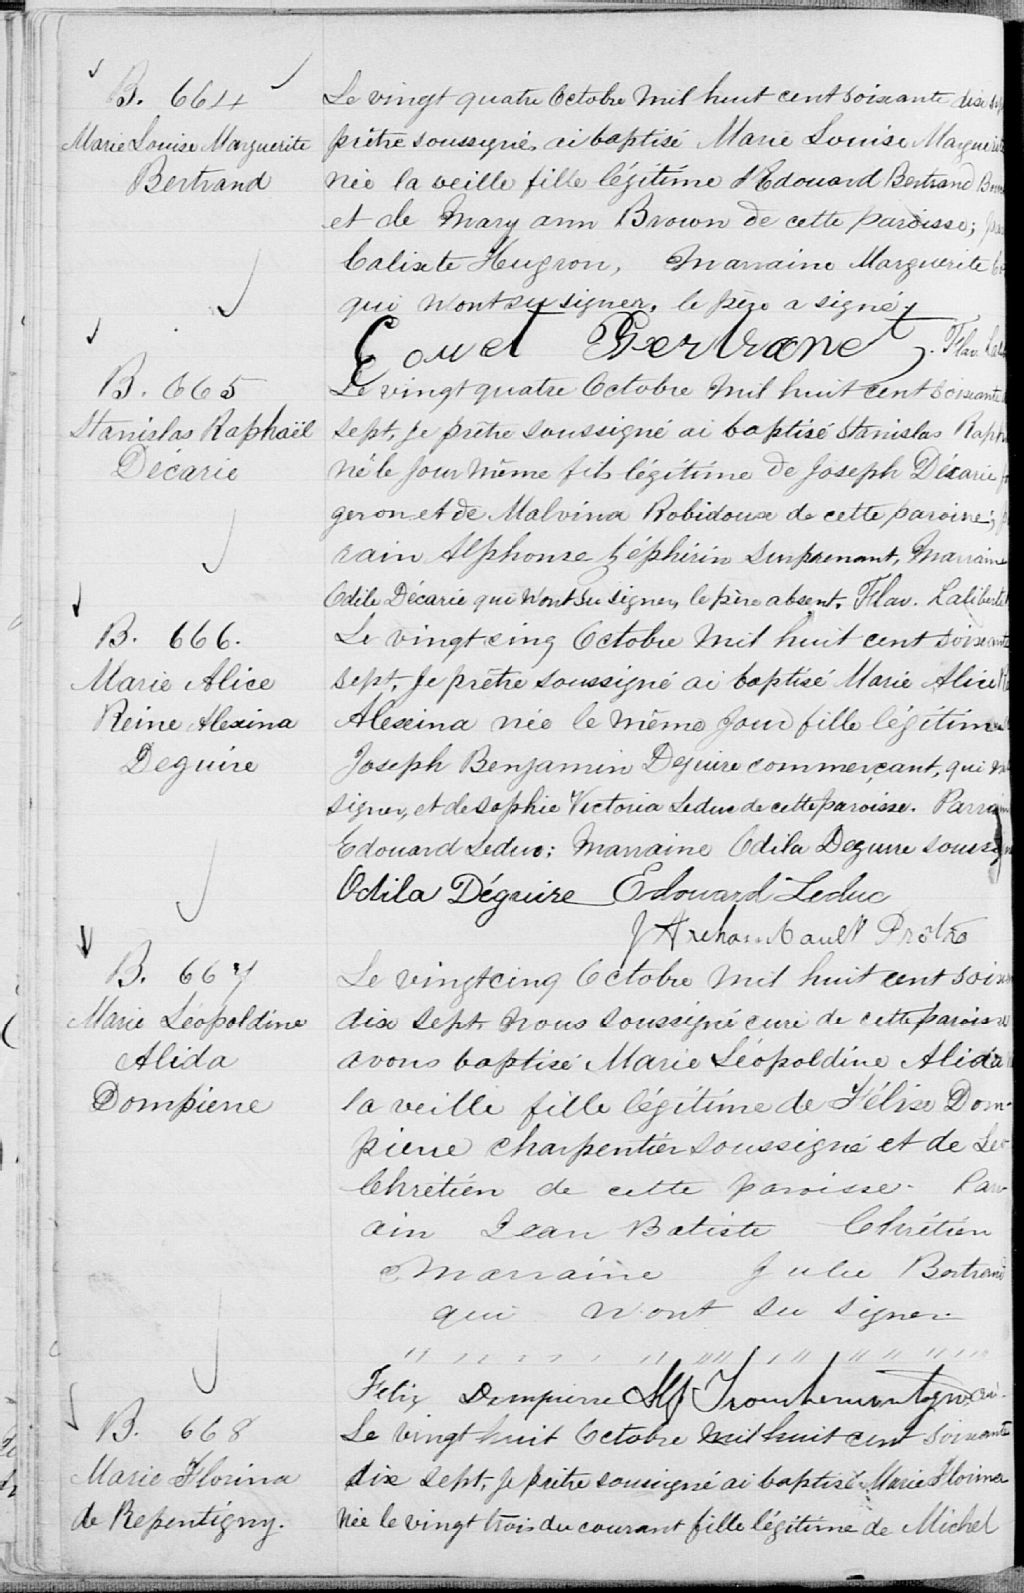 B. 664
Marie Louise Marguerite
Bertrand
Le vingt quatre Octobre mil huit cent soixante dix sep
prêtre soussigné, ai baptisé Marie Louise Marguerite
née la veille fille légitime d'Edouard Bertrand
et de Mary ann Brown de cette paroisse;
Calixte Hugron, Marraine Marguerite
qui n'ont su signer, le père a signé
Edouet Bertrand. Flav.
B. 665
Stanislas Raphaël
Décarie
Le vingt quatre Octobre mil huit cent soixante
sept, je prêtre soussigné ai baptisé Stanislas Raph
né le jour même fils légitime de Joseph Décarie
geron et de Malvina Robidoux de cette paroisse;
rain Alphonse Zéphirin Surprenant, Marraine
Odile Décarie qui n'ont su signer, le père absent. Flav. Laliberté
B. 666.
Marie Alice
Reine Alexina
Deguire
Le vingt cinq Octobre mil huit cent soixante
sept, je prêtre soussigné ai baptisé Marie Alice
Alexina née le même jour fille légitime
Joseph Benjamin Deguire commerçant, qui
signer, et de Sophie Victoria Leduc de cette paroisse. Parrain
Edouard Leduc; Marraine Odila Deguire soussig
Odila Déguire Edouard Leduc
J Archambault Prêtre
B. 667
Marie Léopoldine
Alida
Dompierre
Le vingt cinq Octobre mil huit cent soix
dix sept, nous soussigné curé de cette paroisse
avons baptisé Marie Léopoldine Alida
la veille fille légitime de Félix Dom-
pierre charpentier soussigné et de
Chrétien de cette paroisse. Parr-
ain Jean Batiste Chrétien
Marraine Julie Bertrand
qui n'ont su signer
Felix Dompierre
B. 668
Marie Florina
de Repentigny.
Le vingt huit Octobre mil huit cent soixante
dix sept, je prêtre soussigné ai baptisé Marie Florina
née le vingt trois du courant fille légitime de Michel